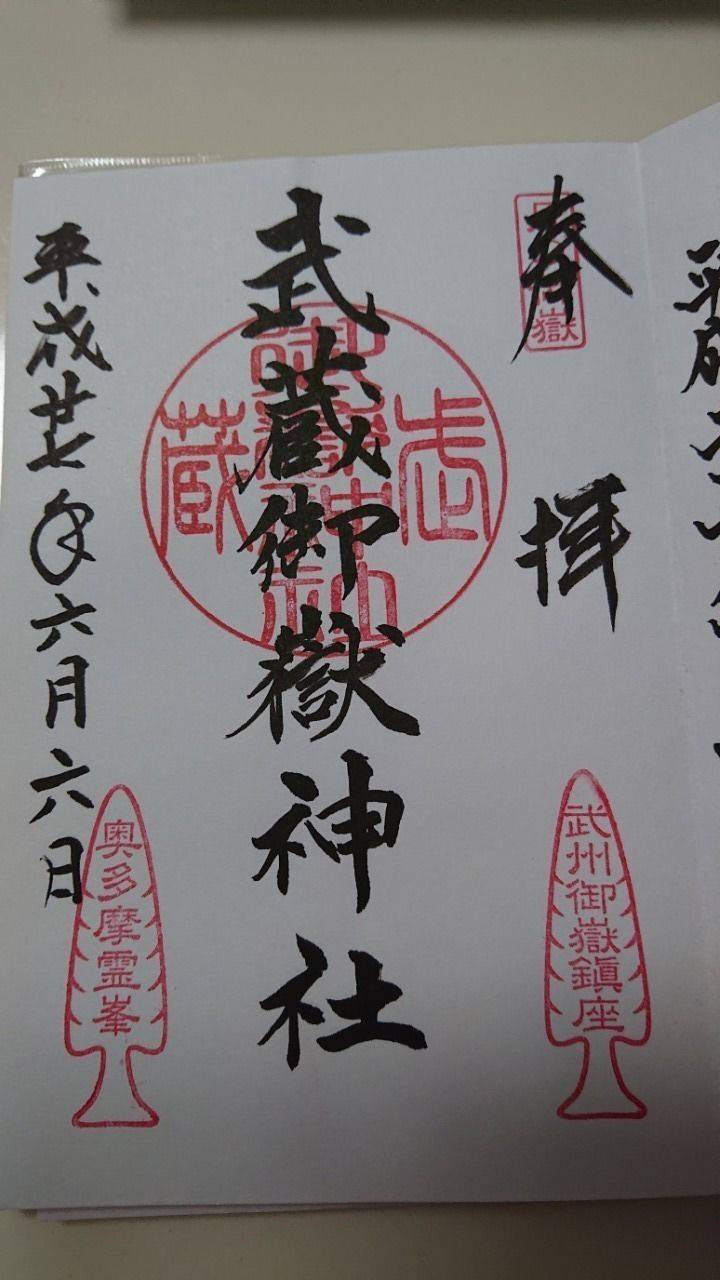 奉拝
武州御嶽鎮座
武蔵御嶽神社
武蔵御嶽神社
平成廿七年六月六日
奥多摩霊峯